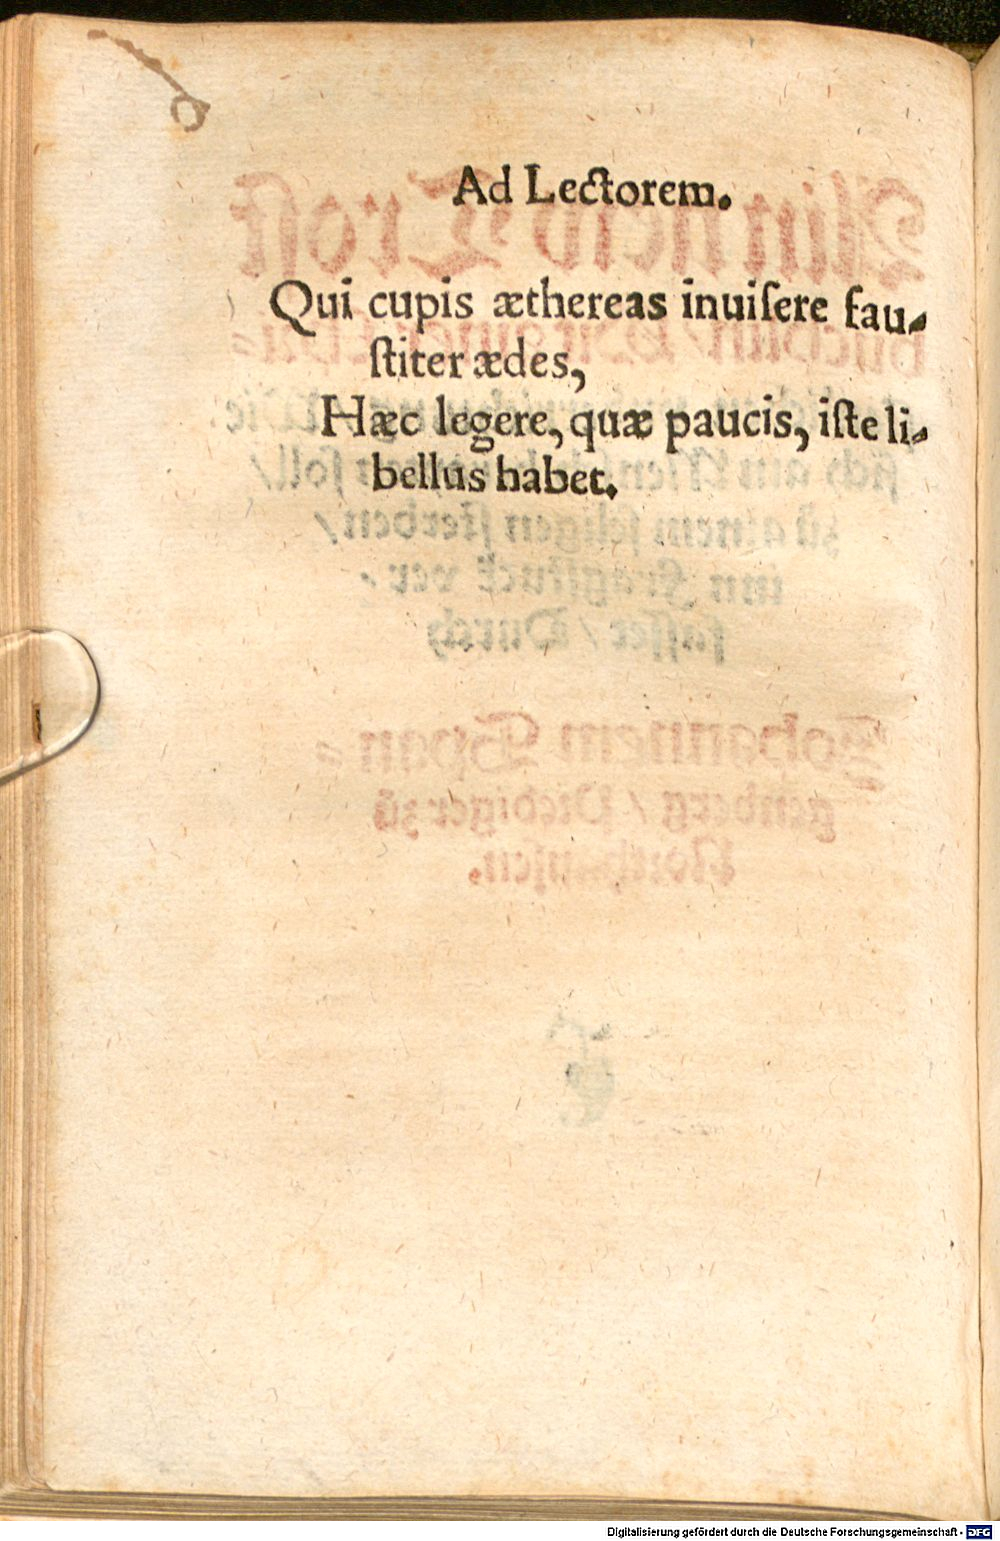 Ad Lectorem.
Qui cupis æthereas inuiſere fau-
ſtiter ædes,
Hæc legere, quæ paucis, iſte li-
bellus habet.
Digitalisierung gefördert durch die Deutsche Forschungsgemeinschaft - DFG